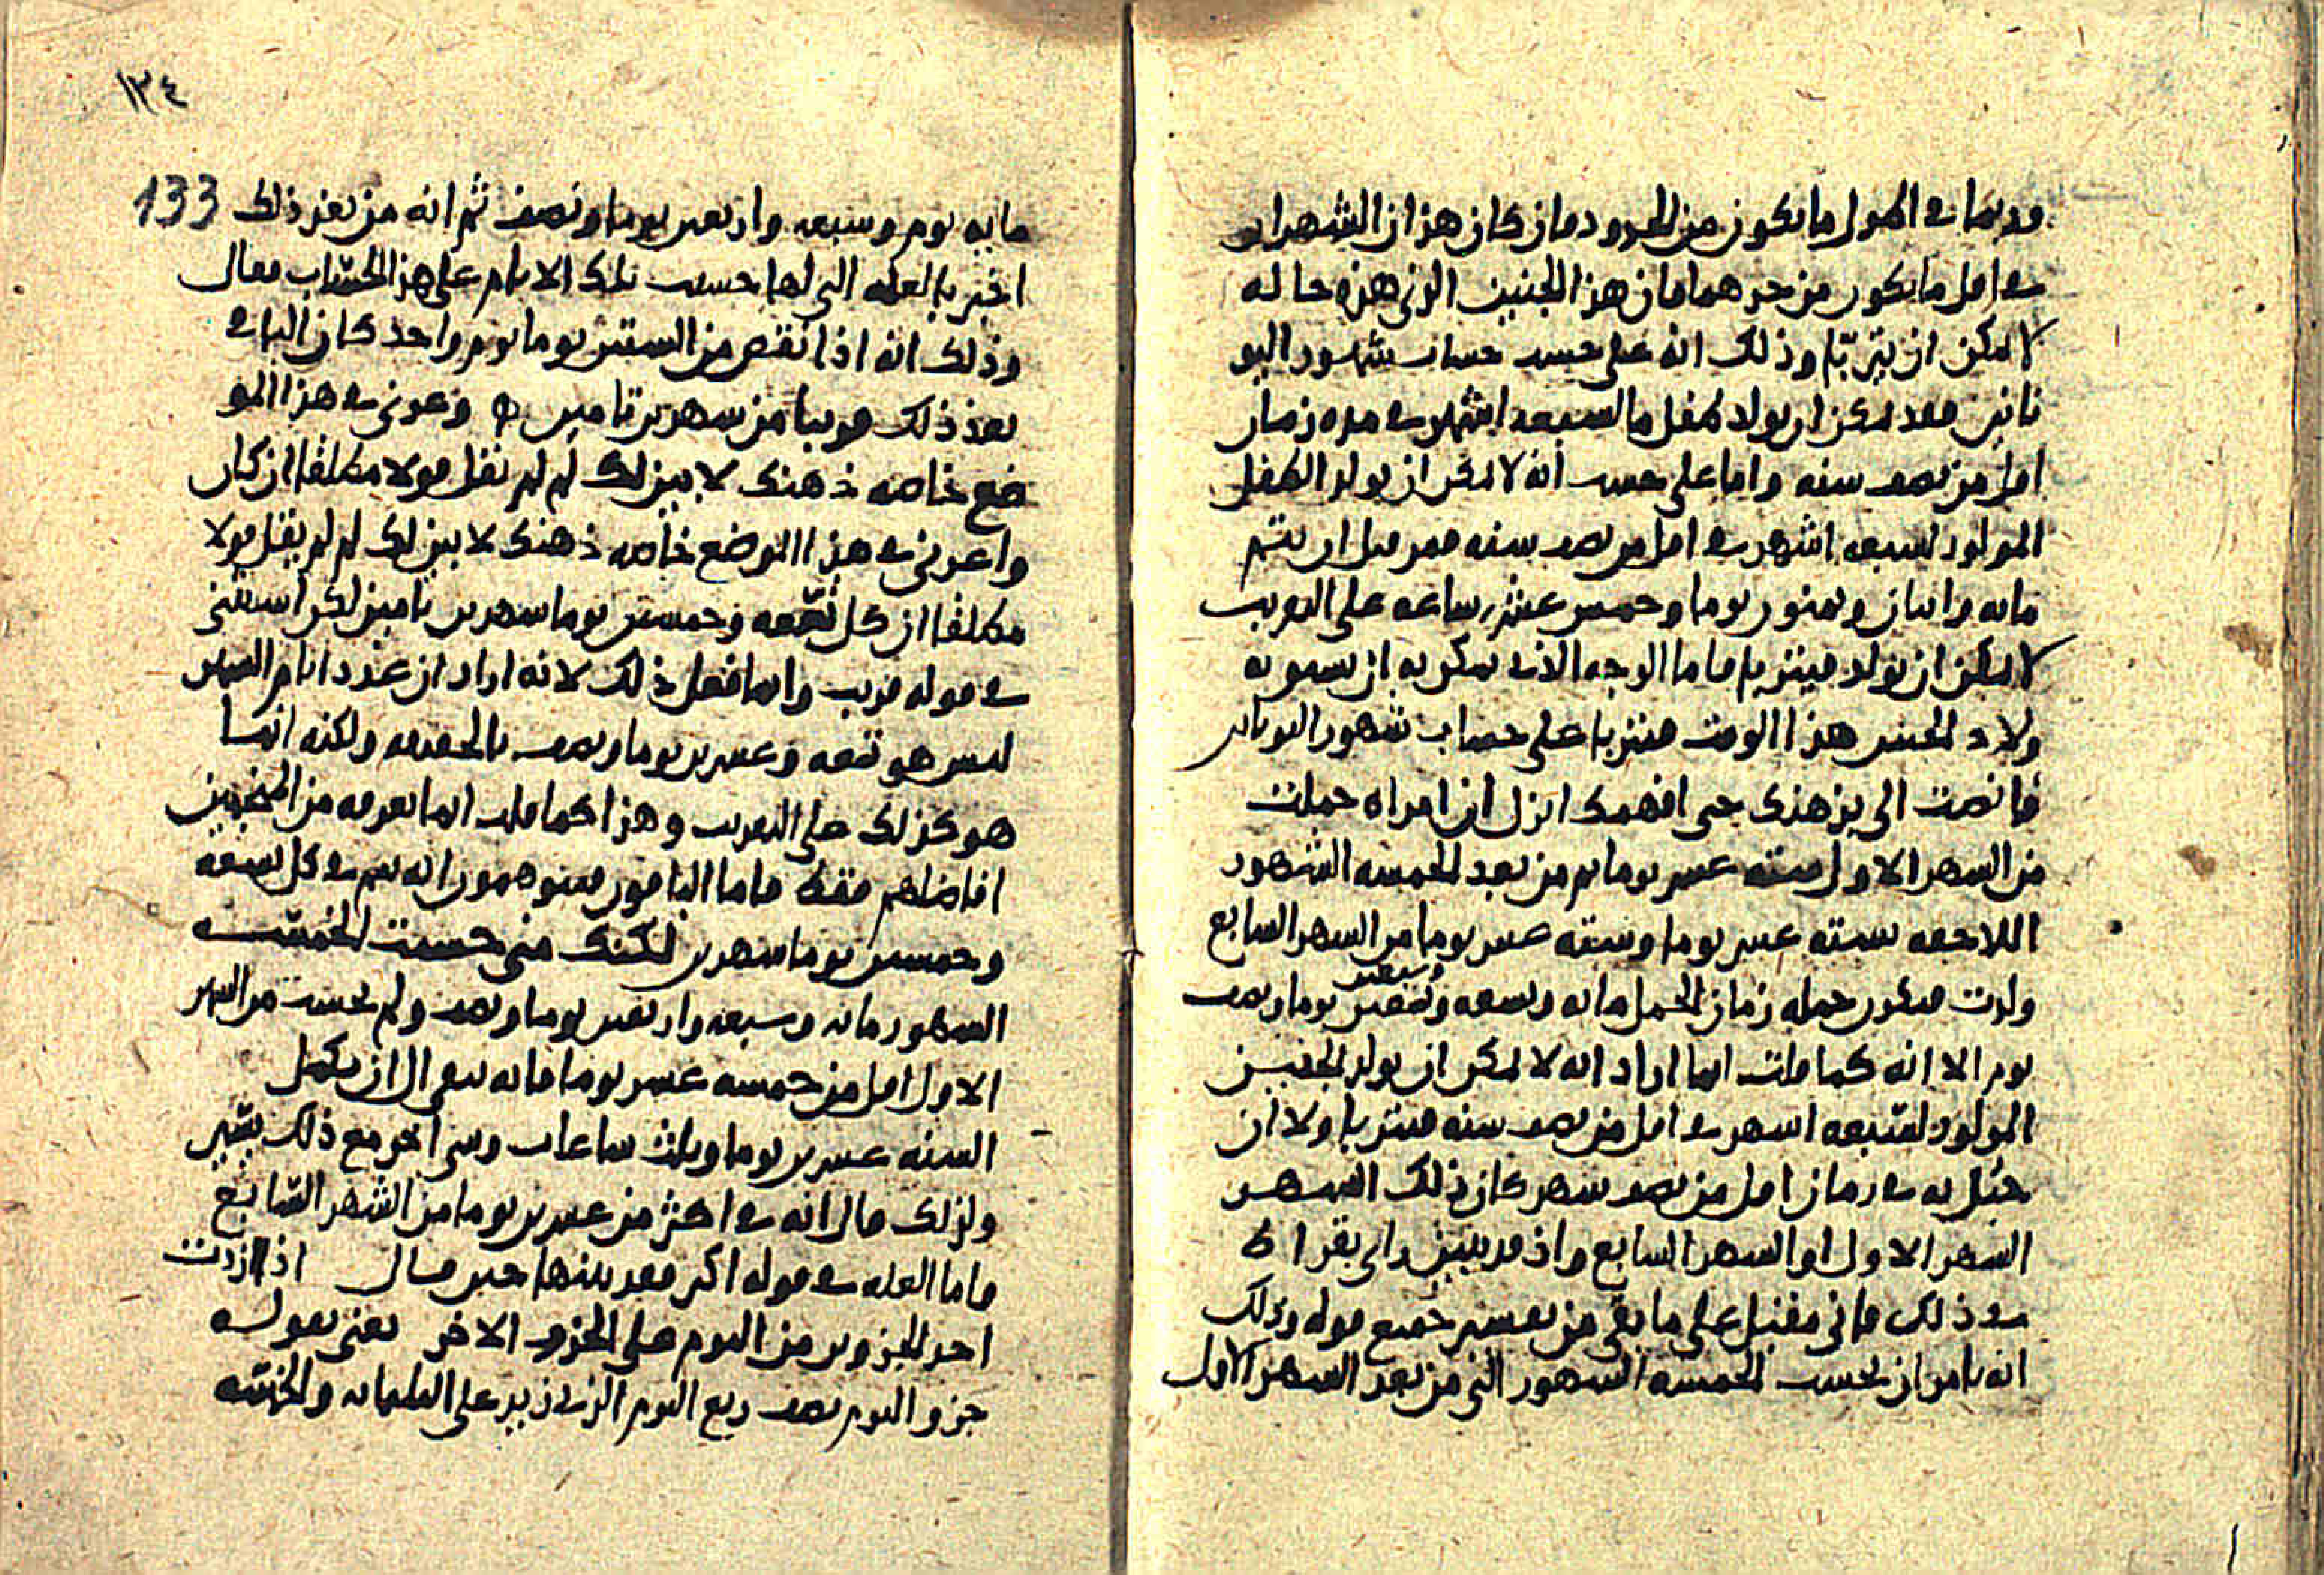 وربما في الطول ما يكون من الحدود فان كان هذان الشهران
في اقل ما يكون من حدهما فان هذا الجنين الذي هذه حاله
لا يمكن ان يتربّا وذلك انه على حسب حساب شهور اليو
نانيين فقد يمكن ان يولد طفل ما لسبعة اشهر في مدة زمان
اقل من نصف سنه واما على حسب انه لا يمكن ان يولد الطفل
المولود لسبعه اشهر في اقل من نصف سنه فمن قبل ان يتم
مايه واثنان وثمنون يوما وخمس عشر ساعه على التقريب
لا يمكن ان يولد فيتربا فاما الوجه الذي يمكن به ان يسموبه
ولاد الجنين هذا الوقت فيتربا على حساب شهور اليونانيين
فانصت الي بذهنك حتى افهمك انزل ان امراه حملت
من الشهر الاول سته عشر يوما ثم من بعد الخمسه الشهور
اللاحقه بسته عشر يوما وسته عشر يوما من الشهر السابع
ولدت فيكون جمله زمان الحمل مايه وتسعه وسبعين يوما ونصف
يوم الا انه كما قلت انما اراد انه لا يمكن ان يولد الجنين
المولود لسبعه اشهر في اقل من نصف سنه فيتربا ولا ان
حبُل به في زمان اقل من نصف شهر كان ذلك الشهر
الشهر الاول او الشهر السابع واذ قد تبين راي بقراط
في ذلك فاني مقبل على ما بقي من تفسير جميع قوله وذلك
انه يامر ان تحسب الخمسه الشهور التي من بعد الشهر الاول
١٣٤
133
مايه يوم وسبعه واربعين يوما ونصف ثم انه من بعد ذلك
اخبر بالعله التي لها حسب تلك الايام على هذا الحساب فقال
وذلك انه اذا نقص من الستين يوما يوم واحد كان الباقي
بعد ذلك قريبا من شهرين تامين وعوني في هذا المو
ضع خاصه ذهنك لابين لك لم لم يقل قولا مطلقا ان كان
واعرني في هذا الموضع خاصه ذهنك لابين لك لم لم يقل قولا
مطلقا ان كل تسّعه وخمسين يوما شهرين تامين لكن استثنى
في قوله قريب وانما فعل ذلك لانه اراد ان عدد ايام الشهر
ليس هو تسعه وعشرين يوما ونصف بالحقيقه ولكنه انما
هو كذلك على التقريب وهذا كما قلت انما يعرفه من المنجمين
افاضلهم فقط فاما الباقون فيتوهمون انه يتم في كل تسعه
وخمسين يوما شهرين لكنك متى حسبت الخمسّه
الشهور مايه وسبعه واربعين يوما ونصف ولم تحسب من الشهر
الاول اقل من خمسه عشر يوما فانه يبقى الى ان يكمل
السنه عشرين يوما وثلث ساعات وشي اخر مع ذلك يسّير
ولذلك قال انه في اكثر من عشرين يوما من الشهر السّابع
فاما العله في قوله اكثر فقد بينها حين قال اذا ازدت
احد الجزوين من اليوم على الجزو الاخر يعني بقوله
جزو اليوم نصف ربع اليوم الذي زيد على الثلثمايه والخمسّه